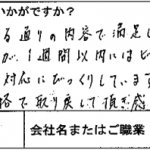 いかがですか？
る通りの内容で満足し
が、1週間以内には
対応にびっくりしています
格で取り戻して頂き感
会社名またはご職業